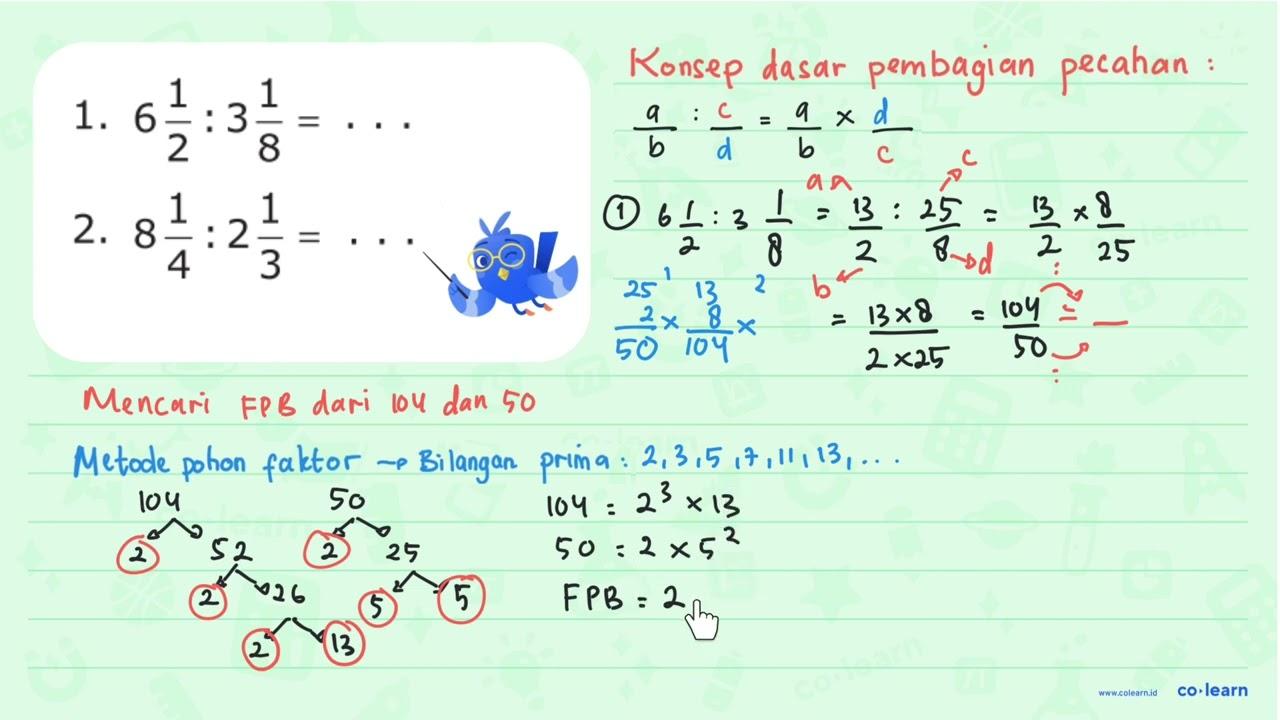 1. 6 1/2 : 3 1/8 = . . .
2. 8 1/4 : 2 1/3 = . . .
Konsep dasar pembagian pecahan :
a/b : c/d = a/b × d/c
① 6 1/2 : 3 1/8 = 13/2 : 25/8 = 13/2 × 8/25
a
b
c
d
= 13×8 / 2×25 = 104/50 = __
:
:
25 1 13 2
2 × 8 ×
50 104
Mencari FPB dari 104 dan 50
Metode pohon faktor → Bilangan prima : 2, 3, 5, 7, 11, 13, ...
104 50
2 52 2 25
2 26 5 5
2 13
104 = 2³ × 13
50 = 2 × 5²
FPB = 2
www.colearn.id co·learn